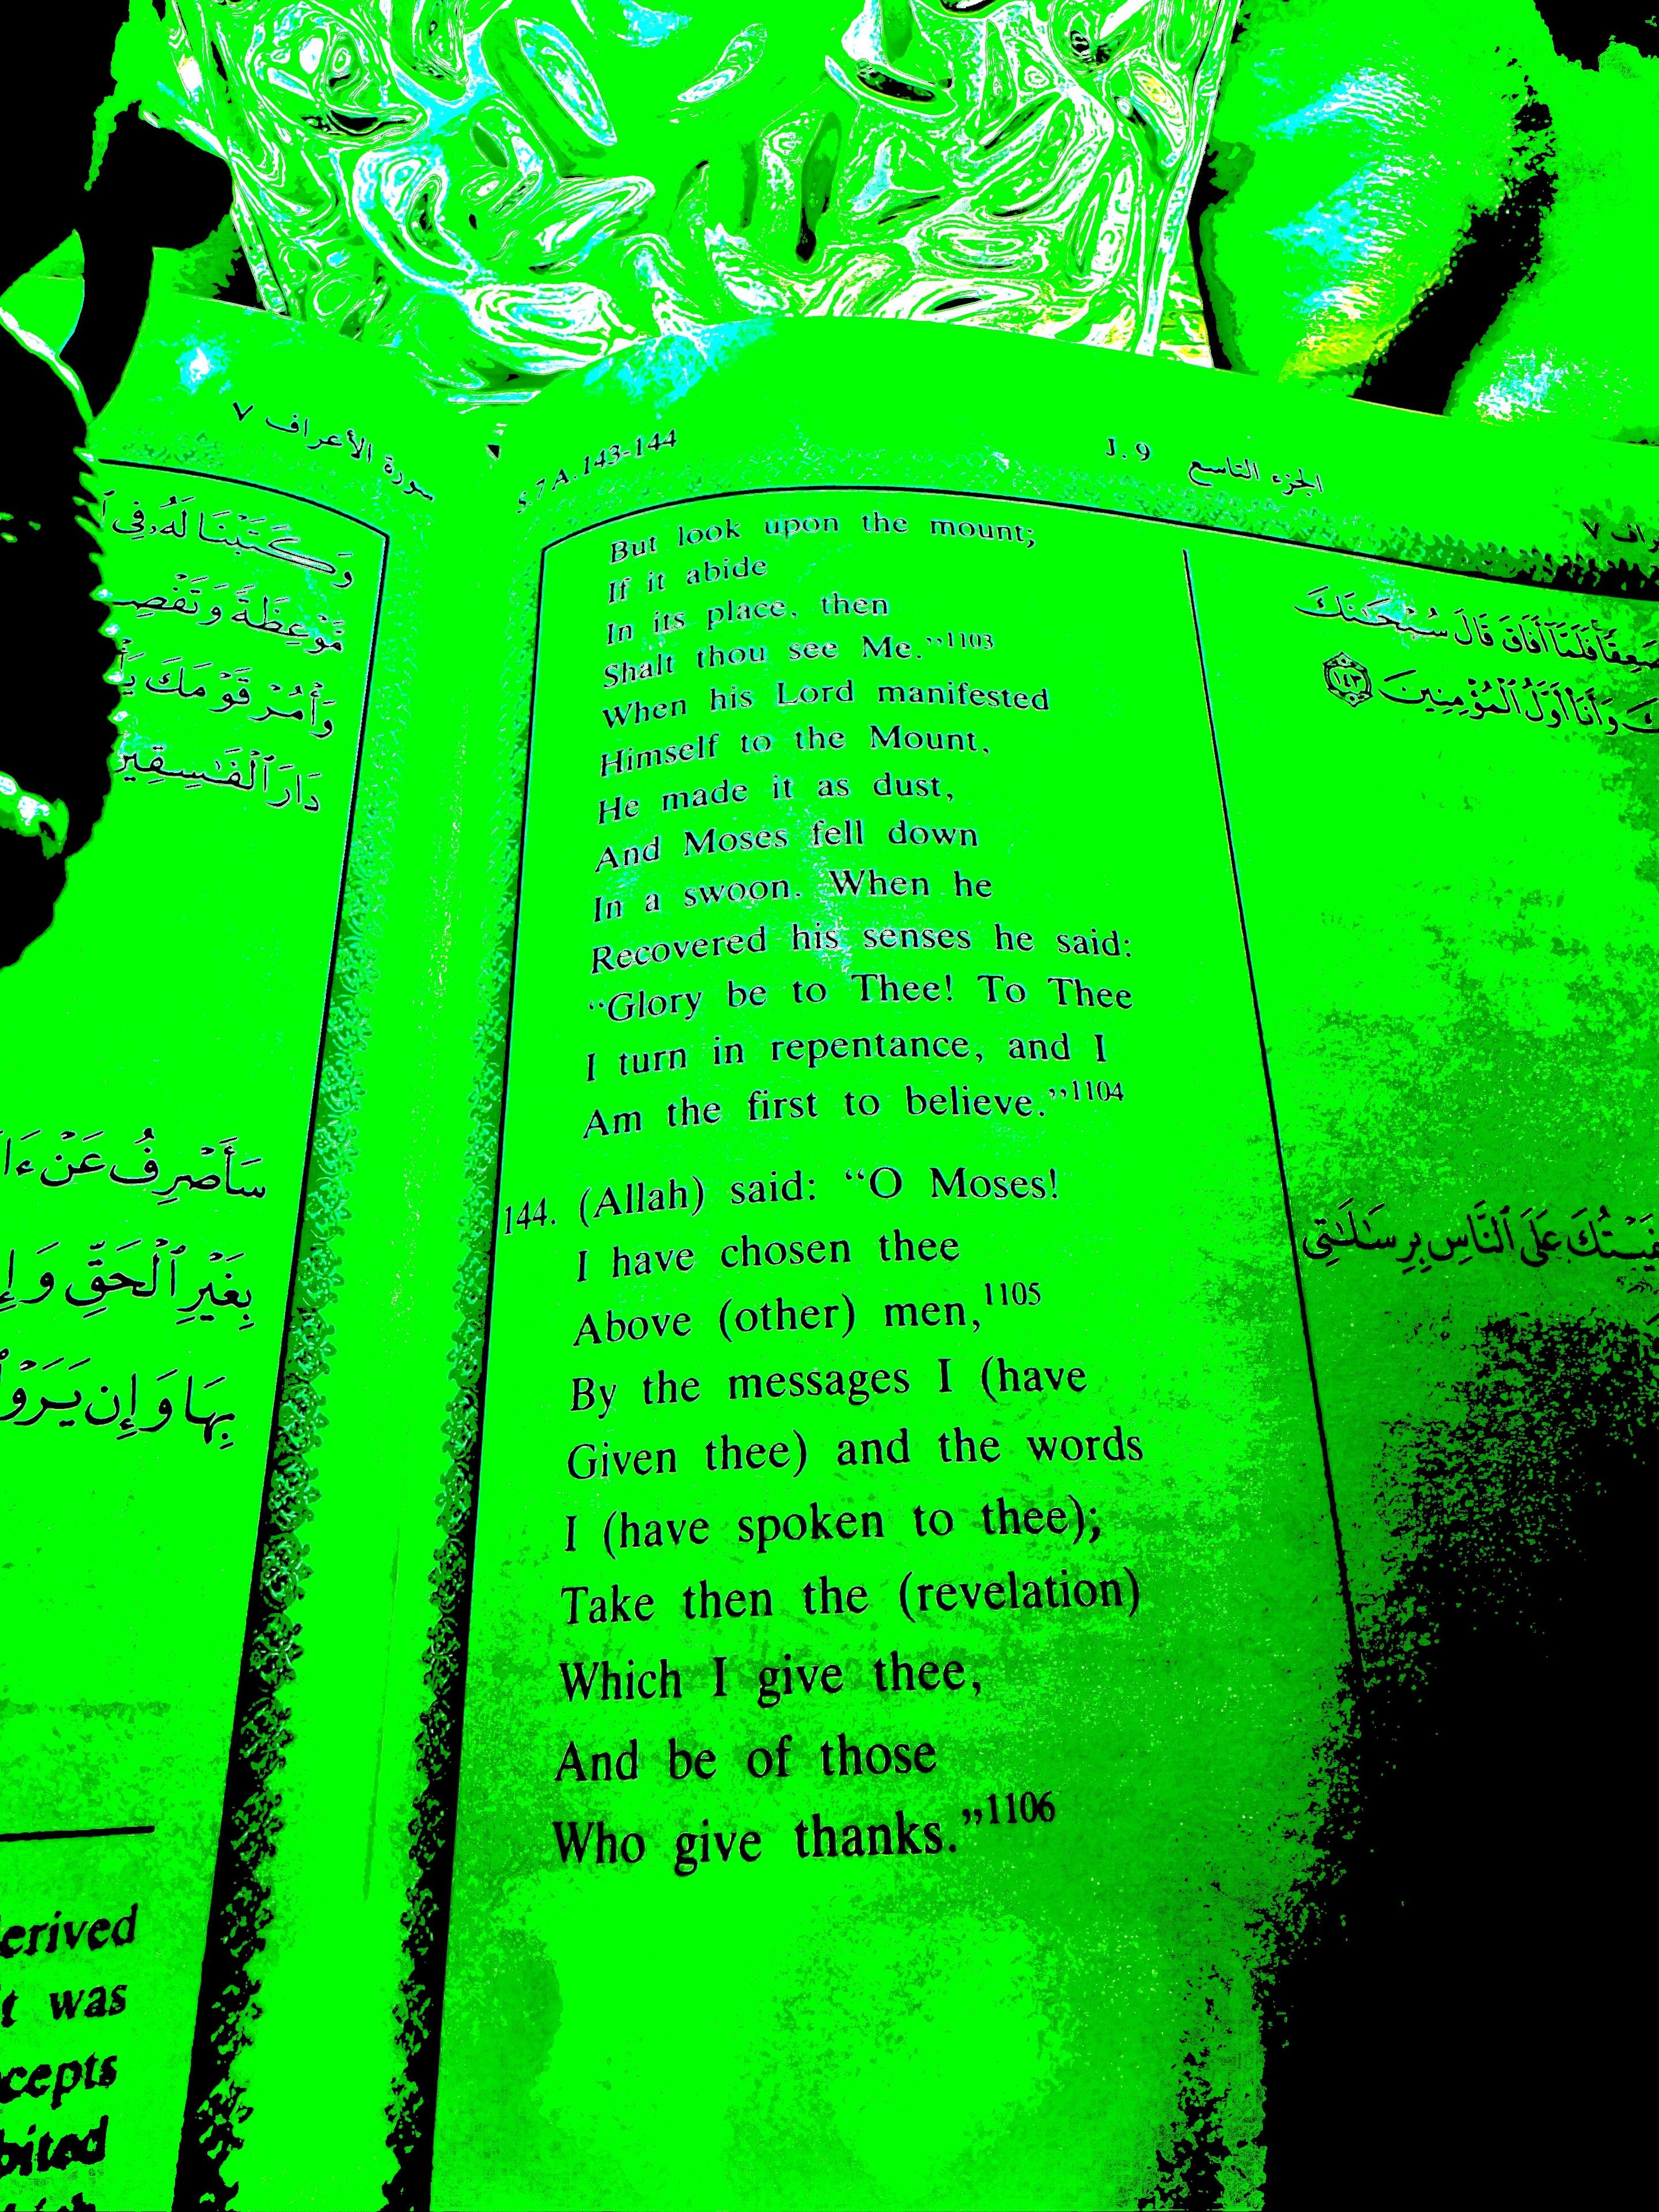 سورة الأعراف ٧
وَكَتَبْنَا لَهُۥ فِى
مَّوْعِظَةً وَتَفْصِ
وَأْمُرْ قَوْمَكَ يَأْ
دَارَ ٱلْفَٰسِقِينَ
سَأَصْرِفُ عَنْ
بِغَيْرِ ٱلْحَقِّ وَإِ
بِهَا وَإِن يَرَوْا۟
erived
t was
cepts
bited
S.7 A.143-144
J. 9 الجزء التاسع
راف ٧
But look upon the mount;
If it abide
In its place, then
Shalt thou see Me."1103
When his Lord manifested
Himself to the Mount,
He made it as dust,
And Moses fell down
In a swoon. When he
Recovered his senses he said:
"Glory be to Thee! To Thee
I turn in repentance, and I
Am the first to believe."1104
144. (Allah) said: "O Moses!
I have chosen thee
Above (other) men,1105
By the messages I (have
Given thee) and the words
I (have spoken to thee);
Take then the (revelation)
Which I give thee,
And be of those
Who give thanks."1106
صَعِقًا فَلَمَّآ أَفَاقَ قَالَ سُبْحَٰنَكَ
كَ وَأَنَا۠ أَوَّلُ ٱلْمُؤْمِنِينَ ١٤٣
فَيْتُكَ عَلَى ٱلنَّاسِ بِرِسَٰلَٰتِى